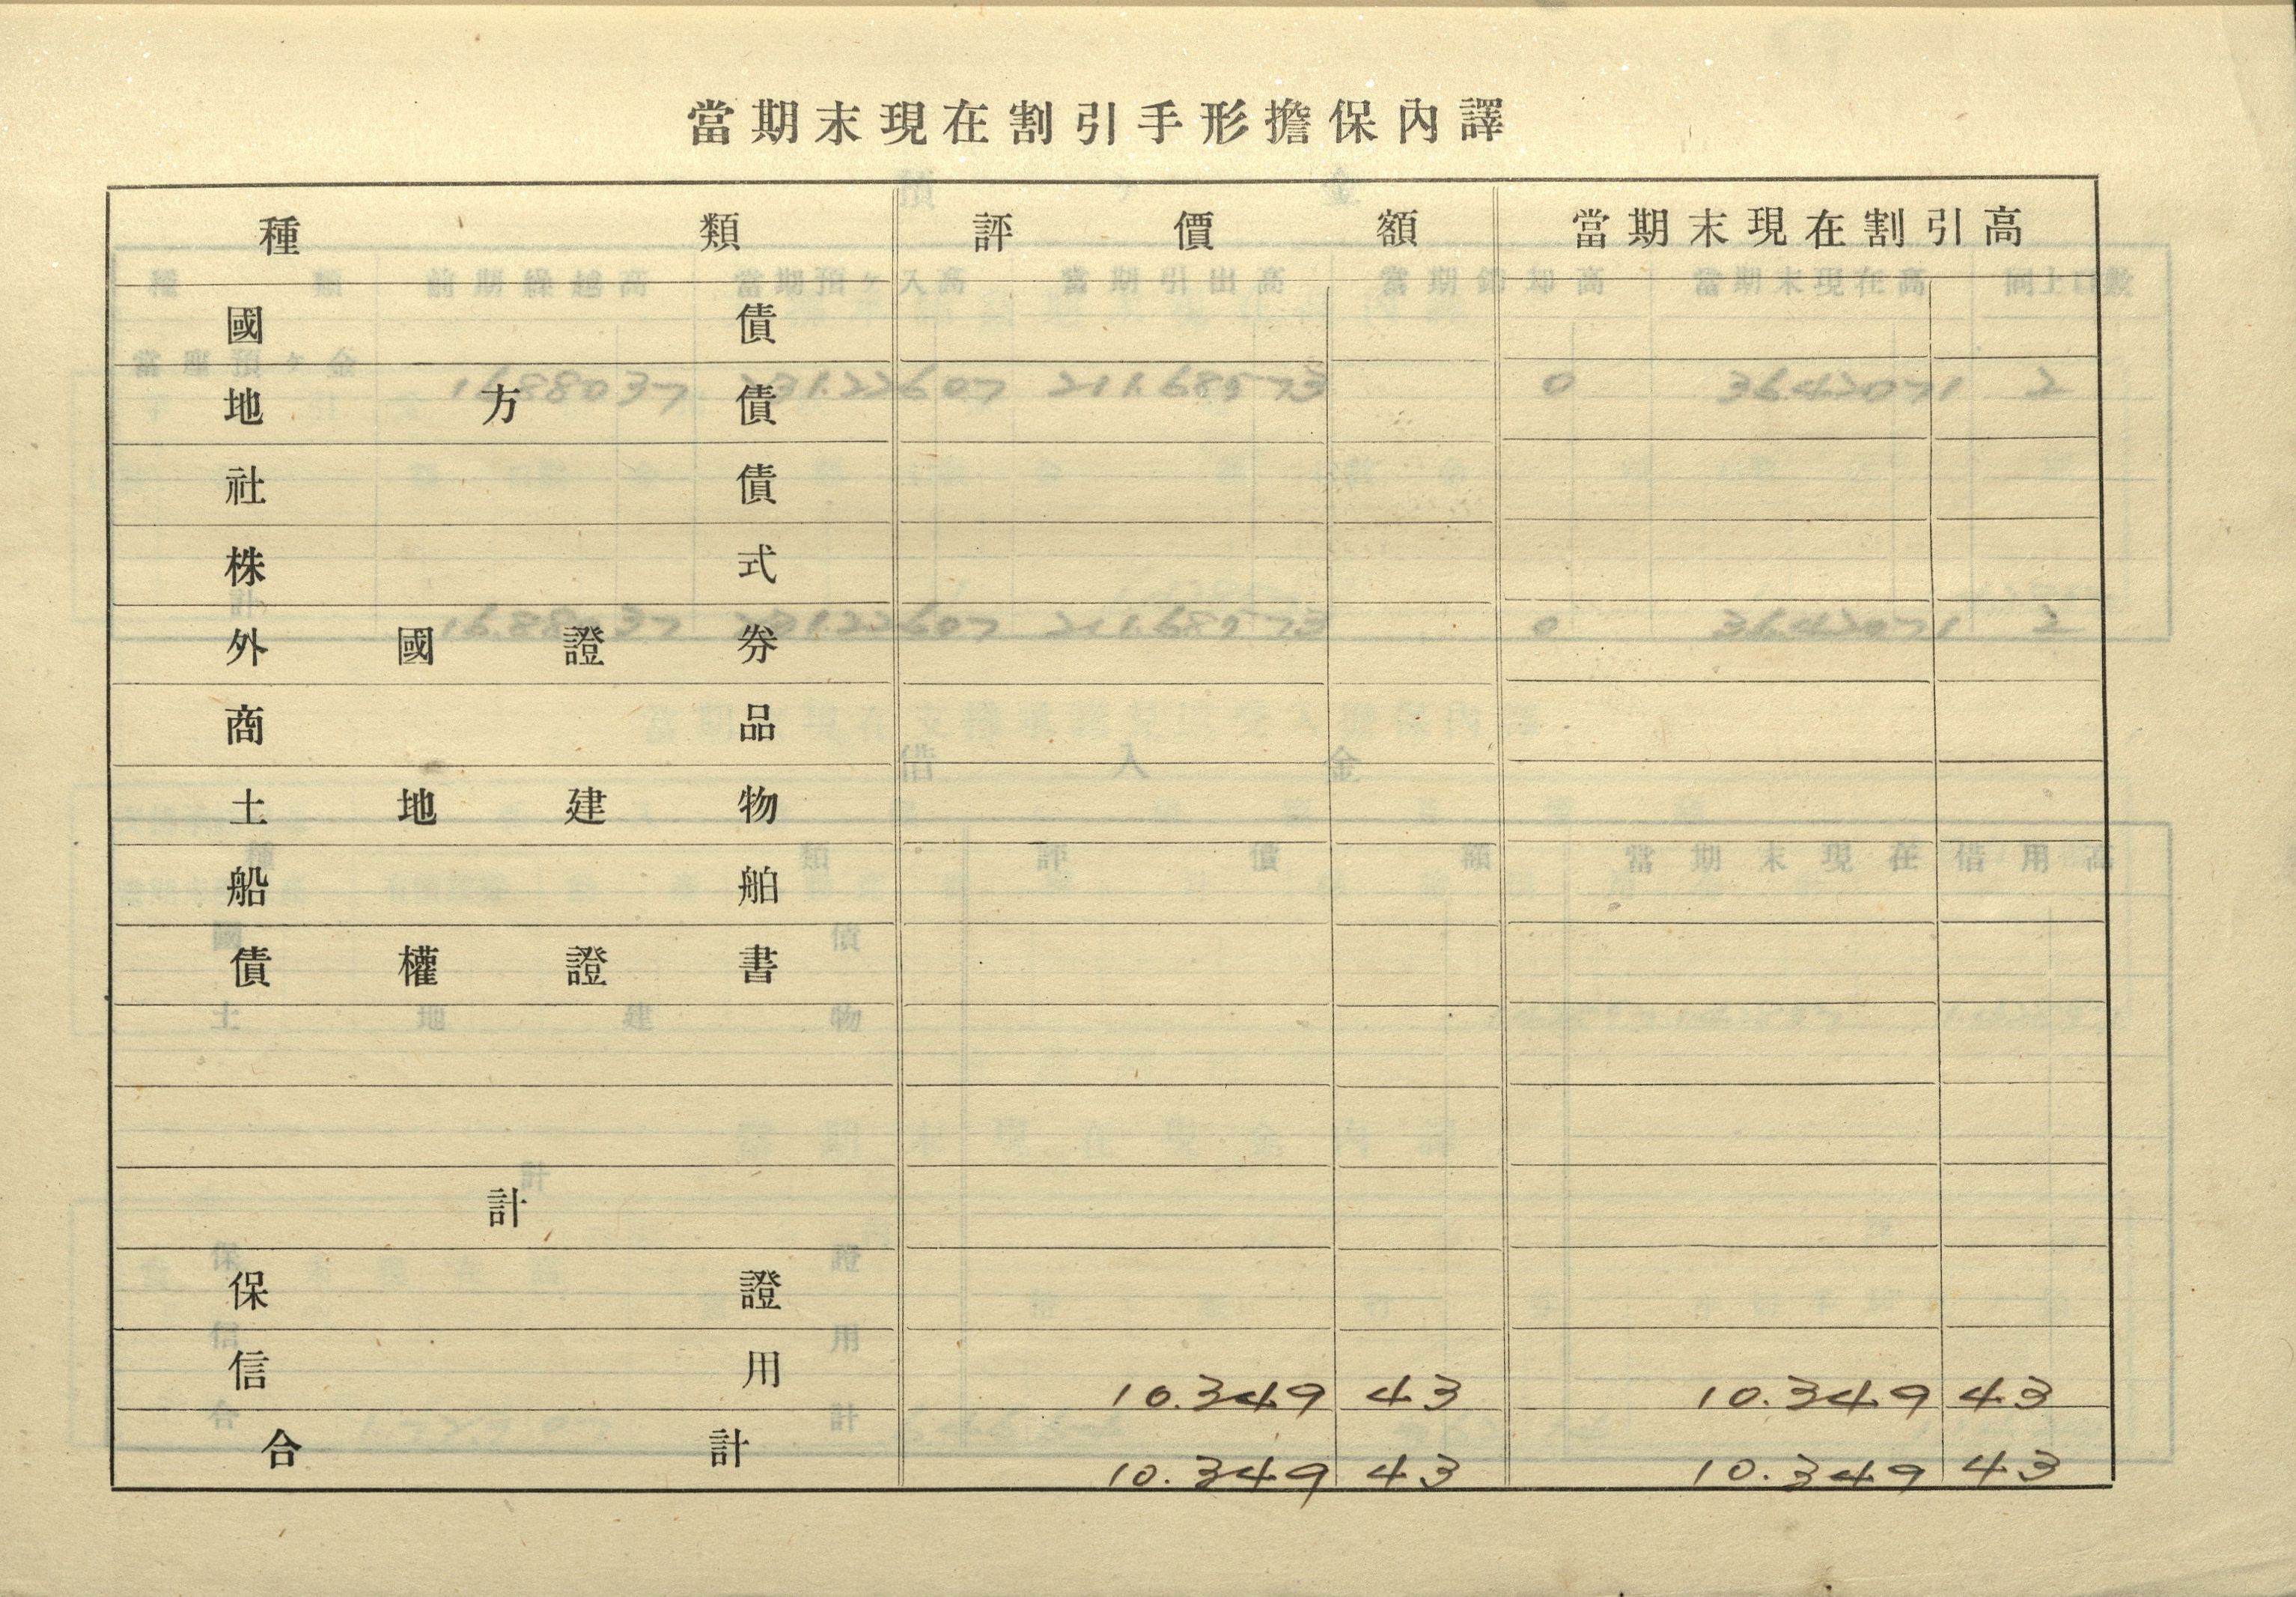 當期末現在割引手形擔保內譯
種類 評價額 當期末現在割引高
國債
地方債
社債
株式
外國證券
商品
土地建物
船舶
債權證書
計
保證
信用 10.349 43 10.349 43
合計 10.349 43 10.349 43